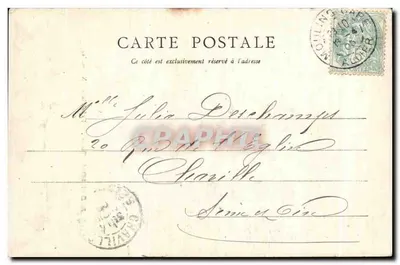 CARTE POSTALE
Ce côté est exclusivement réservé à l'adresse
Mlle Julia Deschamps
20 Rue de l'Eglise
Chaville
Seine et Oise
CHAVILLE